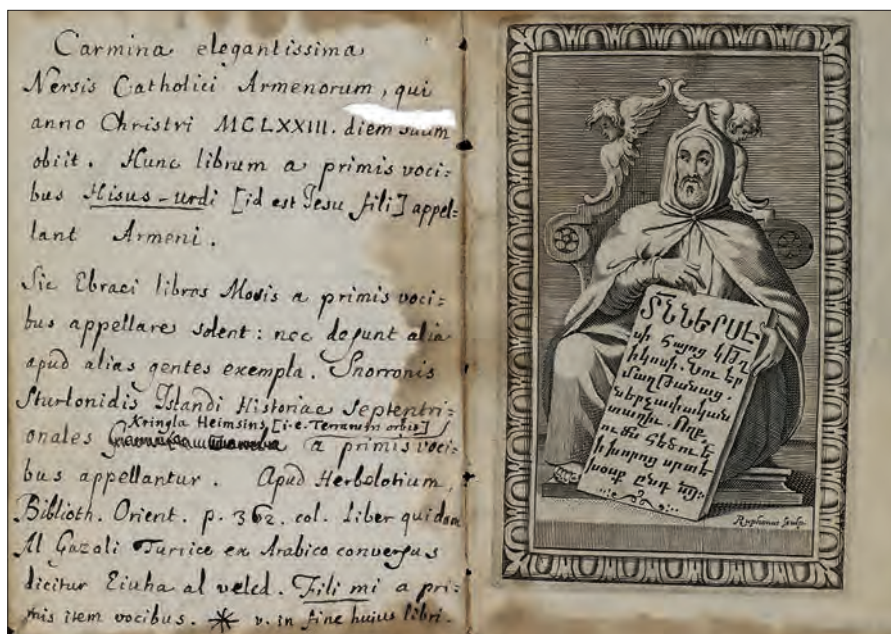 Carmina elegantissima
Nersis Catholici Armenorum, qui
anno Christri MCLXXIII. diem suum
obiit. Hunc librum a primis voci=
bus Hisus-urdi [id est Jesu fili] appel=
lant Armeni.
Sic Ebraei libros Mosis a primis voci=
bus appellare solent: nec desunt alia
apud alias gentes exempla. Snorronis
Sturlonidis Islandi Historiae Septentri=
Kringla Heimsins [i.e. Terrarum orbis]
onales a primis voci=
bus appellantur. Apud Herbelotium,
Biblioth. Orient. p. 362. col. Liber quidam
Al Gazali Turcice ex Arabico conversus
dicitur Eiuha al veled. Fili mi a pri=
mis item vocibus. * v. in fine huius libri.
ՏՆՆԵՐՍԷ
սի հայոց կթղ
իկոսի. նու եր
մաղթանաց.
ներչափական
տաղիւ. Ողբ.
Խօսք ընդ
Sculp.